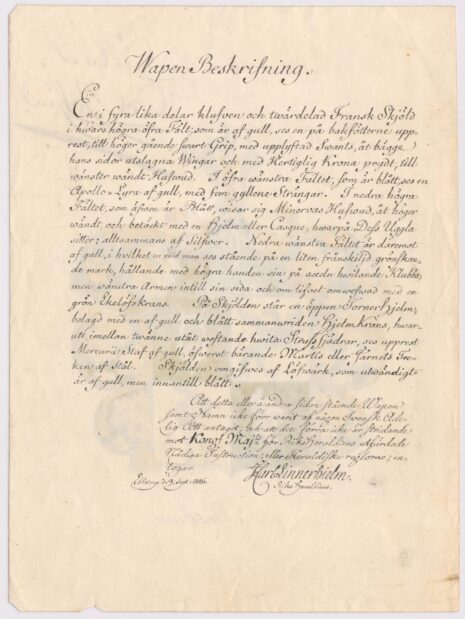 Wapen Beskrifning.
En i fyra lika delar klufven och twärdelad Fransk Skjöld
i hwars högra öfra Fält, som är af gull, ses en på bakfötterne upp-
rest, till höger gående swart Grip, med upplyftad Swants, åt bägge
hans sidor utslagna Wingar och med Hertiglig Krona prydt, till
wänster wändt Hufwud. I öfra wänstra Fältet, som är blått, ses en
Apollos Lyra af gull, med fem gyllene Strängar. I nedra högra
Fältet, som äfwen är Blått, wisar sig Minervas Hufwud, åt höger
wändt och betäckt med en Hjelm eller Casque, hwarpå Dess Uggla
sitter; alltsammans af Silfwer. Nedra wänstra Fältet är däremot
af gull, i hwilket en wild man ses stående på en liten frånskild grönskan-
de mark, hållande med högra handen sin på axeln hwilande Klubba,
men wänstra Armen intill sin sida och om lifwet omwefwad med en
grön Ekelöfskrans. På Skjölden står en öppen Tornerhjelm,
belagd med en af gull och blått sammanwriden Hjelm Krans, hwar-
uti imellan twänne utåt weftande hwita Strussfjädrar, ses upprest
Mercurii Staf af gull, öfwerst bärande Martis eller Järnets Tec-
ken af Stål. Skjölden omgifwes af Löfwärk, som utwändigt
är af gull, men innantill blått.
Att detta eller å andra sidan stående Wapen
samt Namn icke förr warit af någon Swensk Ade-
lig Ätt antaget, och att det förra icke är stridande
mot Kongl. Maj:ts för Riks Heraldicus utfärdade
Nådiga Instruction, eller Heraldiske reglorne; in-
tygar
d. 9. Sept. 1806.
Karl Linnerhielm.
Riks Heraldicus.